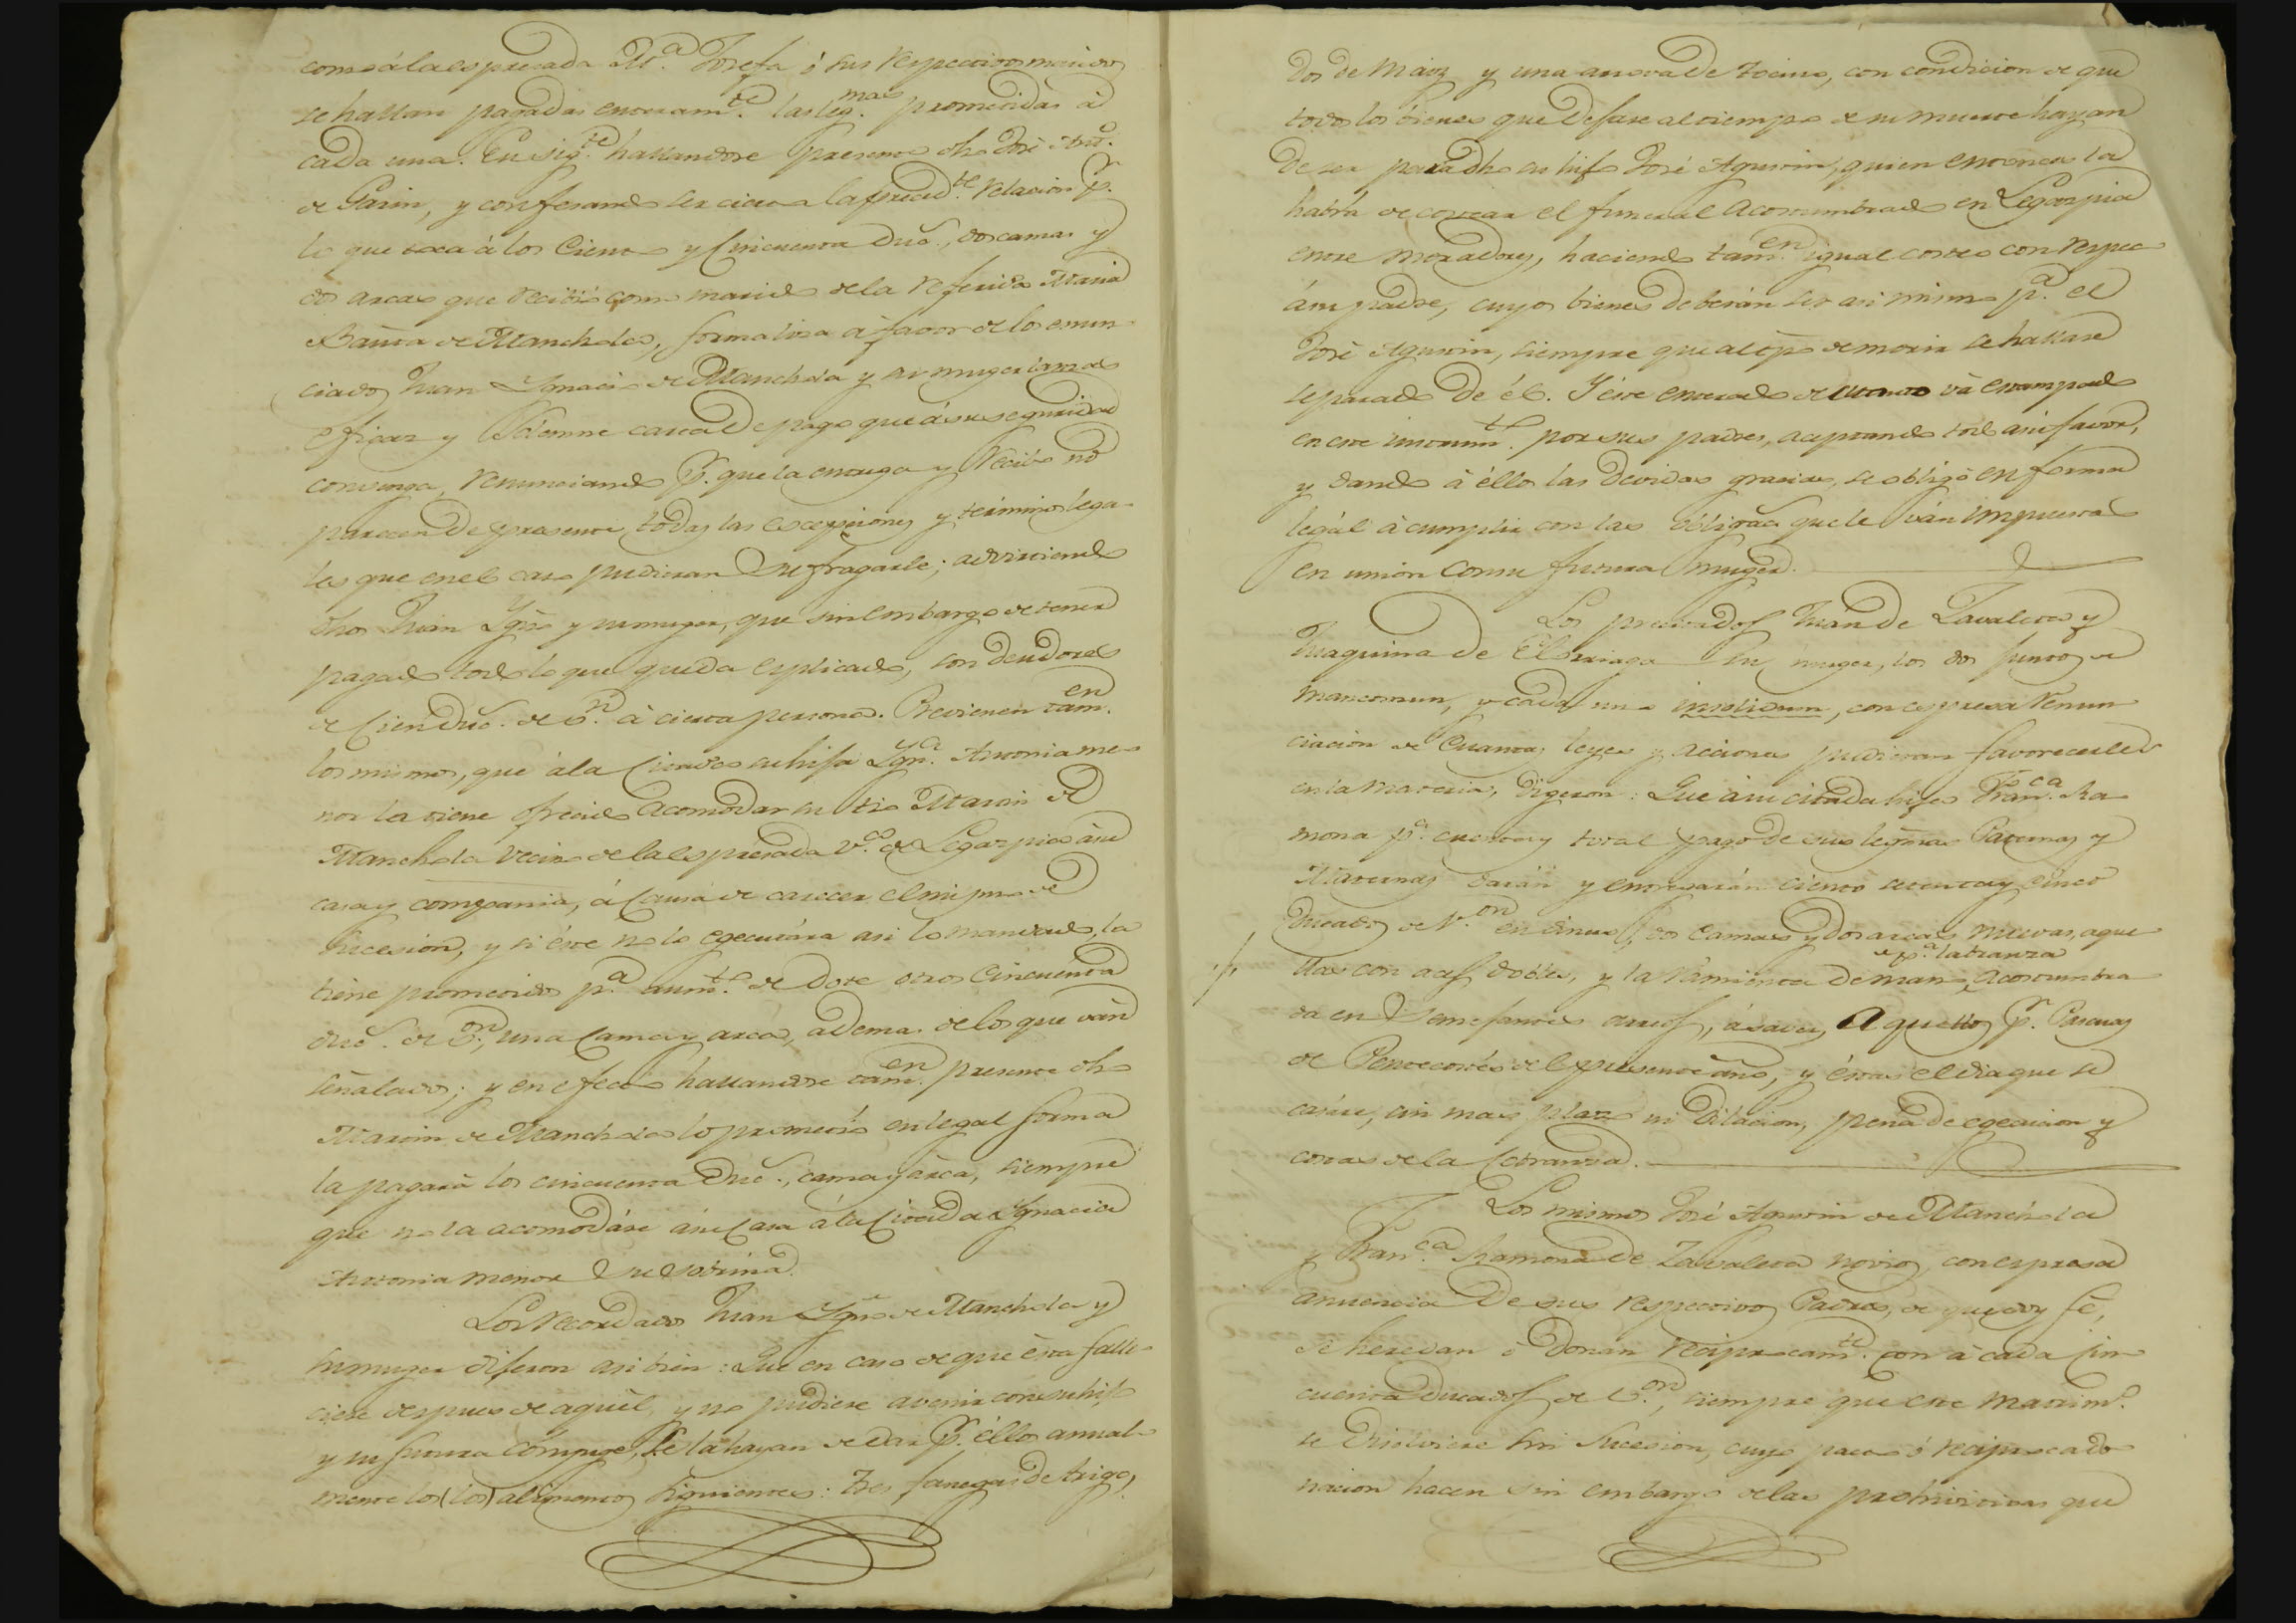 como á la espresada M.ª Josefa ó sus respectivos maridos
se hallan pagadas enteram.te las leg.mas prometidas á
cada una. En sig.te hallandose presente dho José Ant.º
de Garin, y confesando ser cierta la preced.te relacion p.r
lo que toca á los ciento y cincuenta duc.s, dos camas y
dos arcas que recibió como marido de la referida Maria
Bauta de Mancholas, formaliza á favor de los enun-
ciados Juan Ignacio de Manchola y su muger la mas
eficaz y solemne carta de pago que á su seguridad
convenga, renunciando p.r que la entrega y recibo no
parecen de presente, todas las escepciones y términos lega-
les que en el caso pudieran sufragarle; advirtiendo
dhos Juan Ign.o y su muger, que sin embargo de tener
pagado todo lo que queda esplicado, son deudores
de cien duc.s de v.n á cierta persona. Previenen tam.en
los mismos, que á la citada su hija Ign.ª Antonia me-
nor la tiene ofrecido acomodar su tio Martin de
Manchola vecino de la espresada v.ª de Legazpia á su
casa y compania, á causa de carecer el mismo de
sucesion, y si éste no lo egecutára asi lo mandado, la
tiene prometido p.ª aum.to de dote otros cincuenta
duc.s de v.on, una cama y arca, ademas de los que ván
señalados; y en efecto hallandose tam.en presente dho
Martin de Mancholas lo prometió en legal forma
la pagará los cincuenta duc.s, cama y arca, siempre
que no la acomodáre á su casa á la citada Ignacia
Antonia menor su sobrina.
Los recordados Juan Ign.o de Manchola y
su muger dijeron asi bien: Que en caso de que ésta falle-
ciese despues de aquél, y no pudiere avenir con su hijo
y su futura cónyuge, se la hayan de dar p.r éllos anual-
mente los (los) alimentos siguientes: tres fanegas de trigo,
dos de maiz y una arrova de tocino, con condicion de que
todos los bienes que dejare al tiempo de su muerte hayan
de ser para dho su hijo José Agustin, quien entonces la
habrá de costear el funeral acostumbrado en Legazpia
entre moradores, haciendo tam.en igual costeo con respec-
á su padre, cuyos bienes deberán ser asi mismo p.ª el
José Agustin, siempre que al tp.o de morir se hallare
separado de él. Y éste enterado de cuanto vá estampado
en este instrum.to por sus padres, aceptando todo á su favor,
y dando á éllos las devidas gracias, se obligó en forma
legál á cumplir con las obligac.s que le ván impuestas
en unión con su futura muger.
Los precitados Juan de Zavaleta y
Juaquina de Elorriaga su muger, los dos juntos de
mancomun, y cada uno insolidum, con espresa renun-
ciación de cuantas leyes y acciones pudieran favorecerles
en la materia, digeron: Que á su citada hija Fran.ca Ra-
mona p.ª cuenta y total pago de sus legitimas Paternas y
Maternas darán y entregarán ciento setenta y cinco
ducados de v.on en dinero, dos camas y dos arcas nuevas, aque-
de p.ª labranza
llas con azes dobles, y la ramienta de mano, acostumbra-
da en semejantes arreos, á saver, aquellos p.r Pascuas
de Pentecostés de el presente año, y éstas el dia que se
casáre, sin mas plazo ni dilacion, pena de egecucion y
costas de la cobranza.
Los mismos José Agustin de Manchola
y Fran.ca Ramona de Zavaleta novios, con espresa
anuencia de sus respectivos Padres, de que doy fé,
se heredan ó donan reciprocam.te con á cada cin-
cuenta ducados de v.on, siempre que este matrim.o
se disolviere sin sucesion, cuyo pacto ó reciproca do-
nacion hacen sin embargo de las prohivitivas que